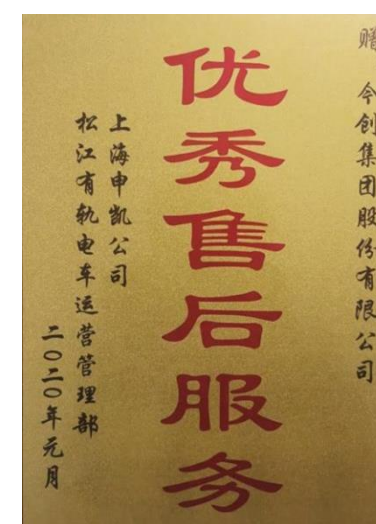 赠
今创集团股份有限公司
优秀售后服务
上海申凯公司
松江有轨电车运营管理部
二〇二〇年元月